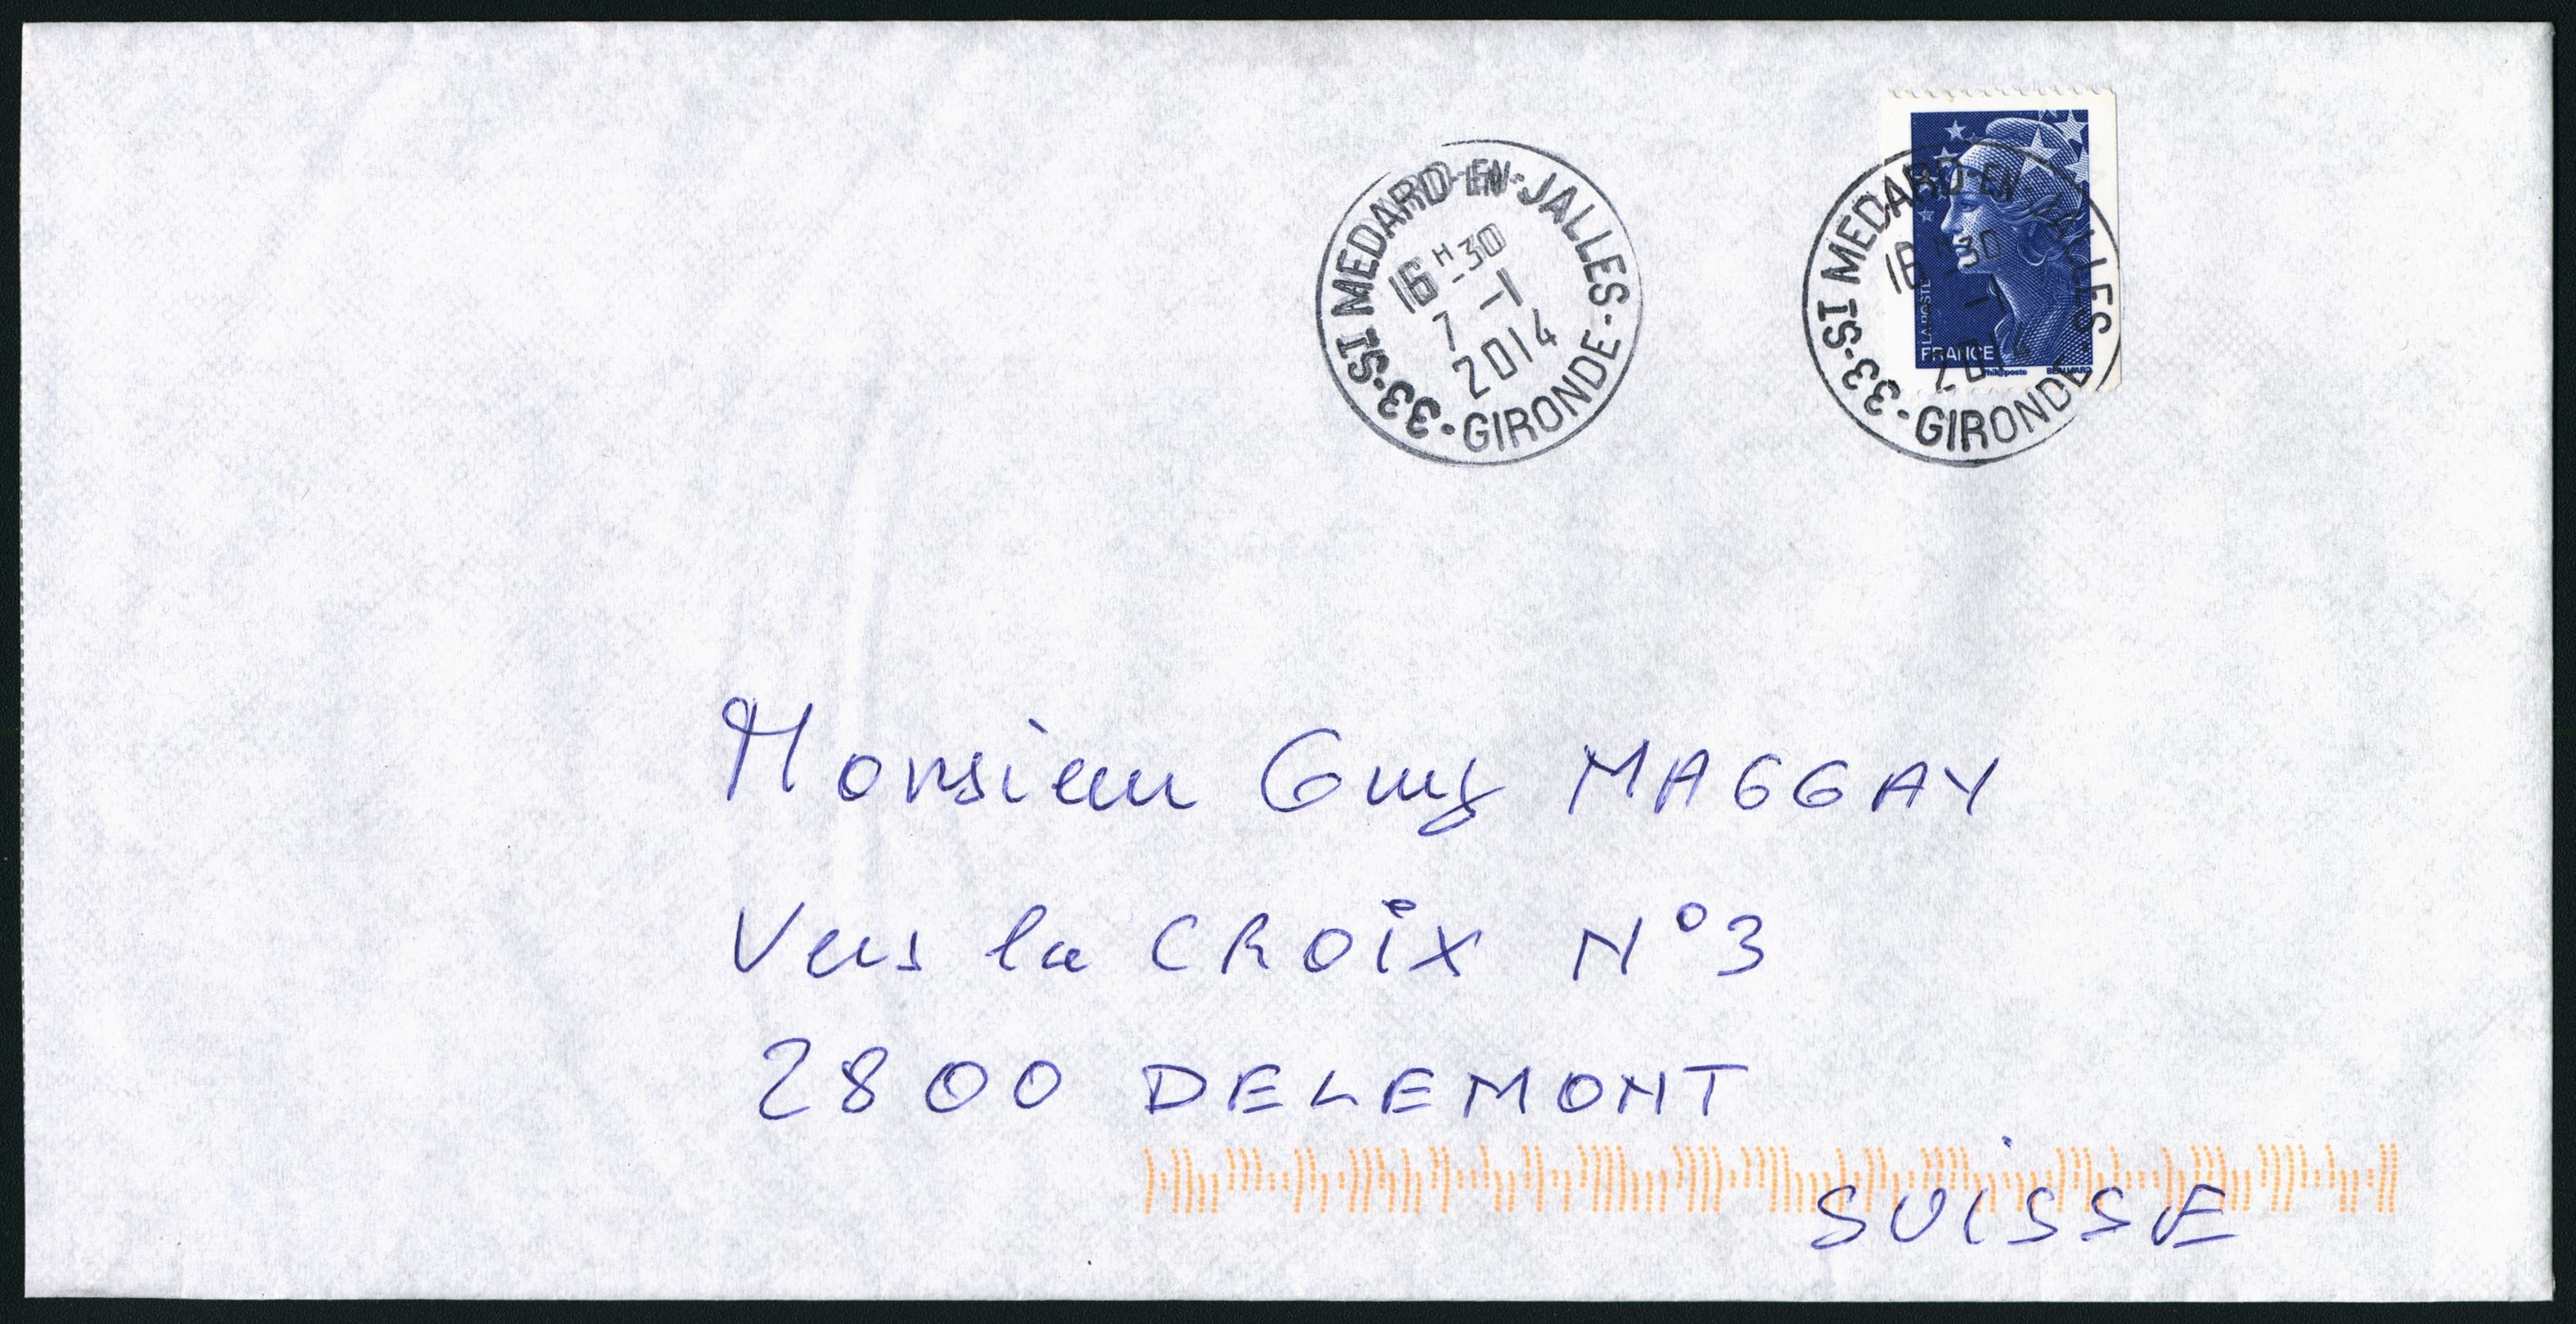 33-ST MEDARD-EN-JALLES-GIRONDE
16H30
7 -1
2014
33-ST MEDARD-EN-JALLES-GIRONDE
16H30
-1
2014
LA POSTE
FRANCE
Phil@poste BEAUJARD
Monsieur Guy MAGGAY
Vers la CROIX N°3
2800 DELEMONT
SUISSE